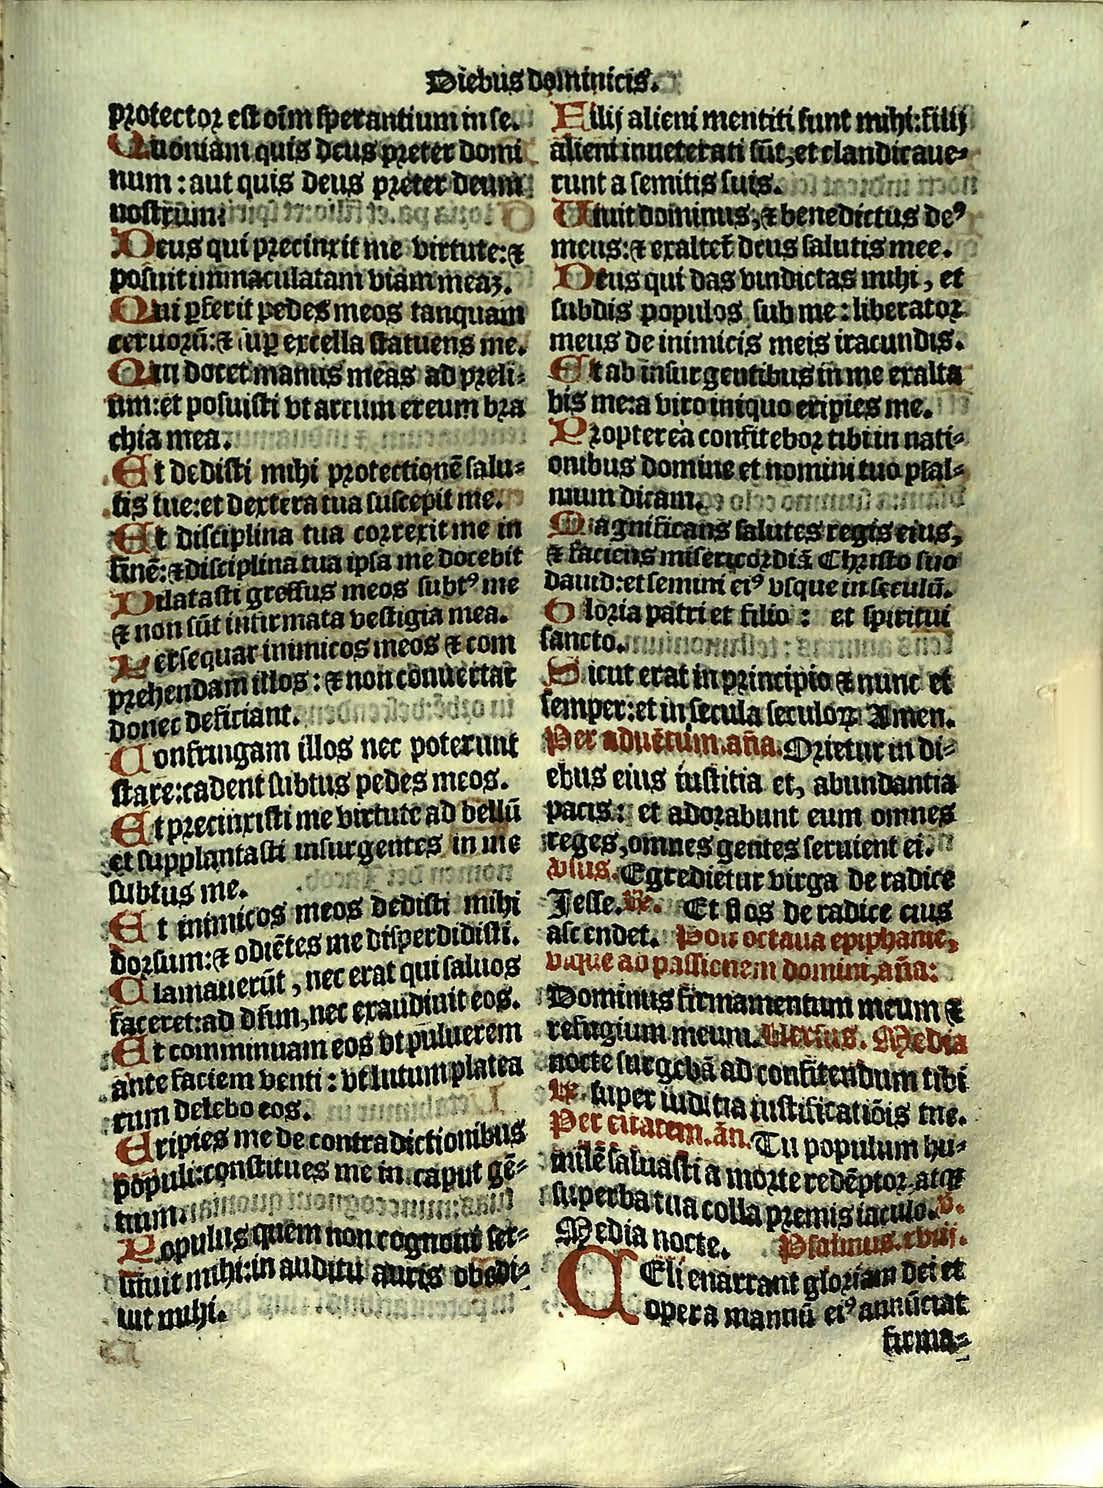 Diebus dominicis.
protector est oīm sperantium in se.
Quoniam quis deus preter domi
num : aut quis deus preter deum
nostrum:
Deus qui precinxit me virtute: &
posuit immaculatam viam meaꝫ.
Qui ꝑfecit pedes meos tanquam
ceruorū: & suꝑ excelsa statuens me.
Qui docet manus meas ad preli-
um: et posuisti vt arcum ereum bra
chia mea.
Et dedisti mihi protectionē salu-
tis tue: et dextera tua suscepit me.
Et disciplina tua correxit me in
finē: & disciplina tua ipsa me docebit
Dilatasti gressus meos subtꝰ me
& non sūt infirmata vestigia mea.
Persequar inimicos meos & com
prehendam illos : & non conuertar
donec deficiant.
Confringam illos nec poterunt
stare: cadent subtus pedes meos.
Et precinxisti me virtute ad bellū
et supplantasti insurgentes in me
subtus me.
Et inimicos meos dedisti mihi
dorsum: & odiētes me disperdidisti.
Clamauerūt , nec erat qui saluos
faceret: ad dñm, nec exaudiuit eos.
Et comminuam eos vt puluerem
ante faciem venti : vt lutum platea
rum delebo eos.
Eripies me de contradictionibus
populi: constitues me in caput gē-
tium.
Populus quem non cognoui ser-
uiuit mihi: in auditu auris obedi-
uit mihi.
Filij alieni mentiti sunt mihi: filij
alieni inueterati sūt, et claudicaue-
runt a semitis suis.
Uiuit dominus, & benedictus deꝰ
meus: & exaltet̄ deus salutis mee.
Deus qui das vindictas mihi , et
subdis populos sub me : liberator
meus de inimicis meis iracundis.
Et ab insurgentibus in me exalta
bis me: a viro iniquo eripies me.
Propterea confitebor tibi in nati-
onibus domine et nomini tuo psal-
mum dicam.
Magnificans salutes regis eius,
& faciens misericordiā Christo suo
dauid: et semini eiꝰ vsque in seculū.
Gloria patri et filio : et spiritui
sancto.
Sicut erat in principio & nunc et
semper: et in secula seculoꝝ Amen.
Per aduētum. aña. Orietur in di-
ebus eius iustitia et, abundantia
pacis : et adorabunt eum omnes
reges, omnes gentes seruient ei.
vsus. Egredietur virga de radice
Jesse. ℞. Et flos de radice eius
ascendet. Post octaua epiphanie,
vsque ad passionem domini, aña:
Dominus firmamentum meum &
refugium meum. Uersus. Media
nocte surgebā ad confitendum tibi
℞. super iuditia iustificatiōis tue.
Per estatem. añ. Tu populum hu-
milē saluasti a morte redēptor atqꝫ
superba tua colla premis iaculo. v.
Media nocte. Psalmus. xviij.
CEli enarrant gloriam dei et
opera manuū eiꝰ annūciat
firma-